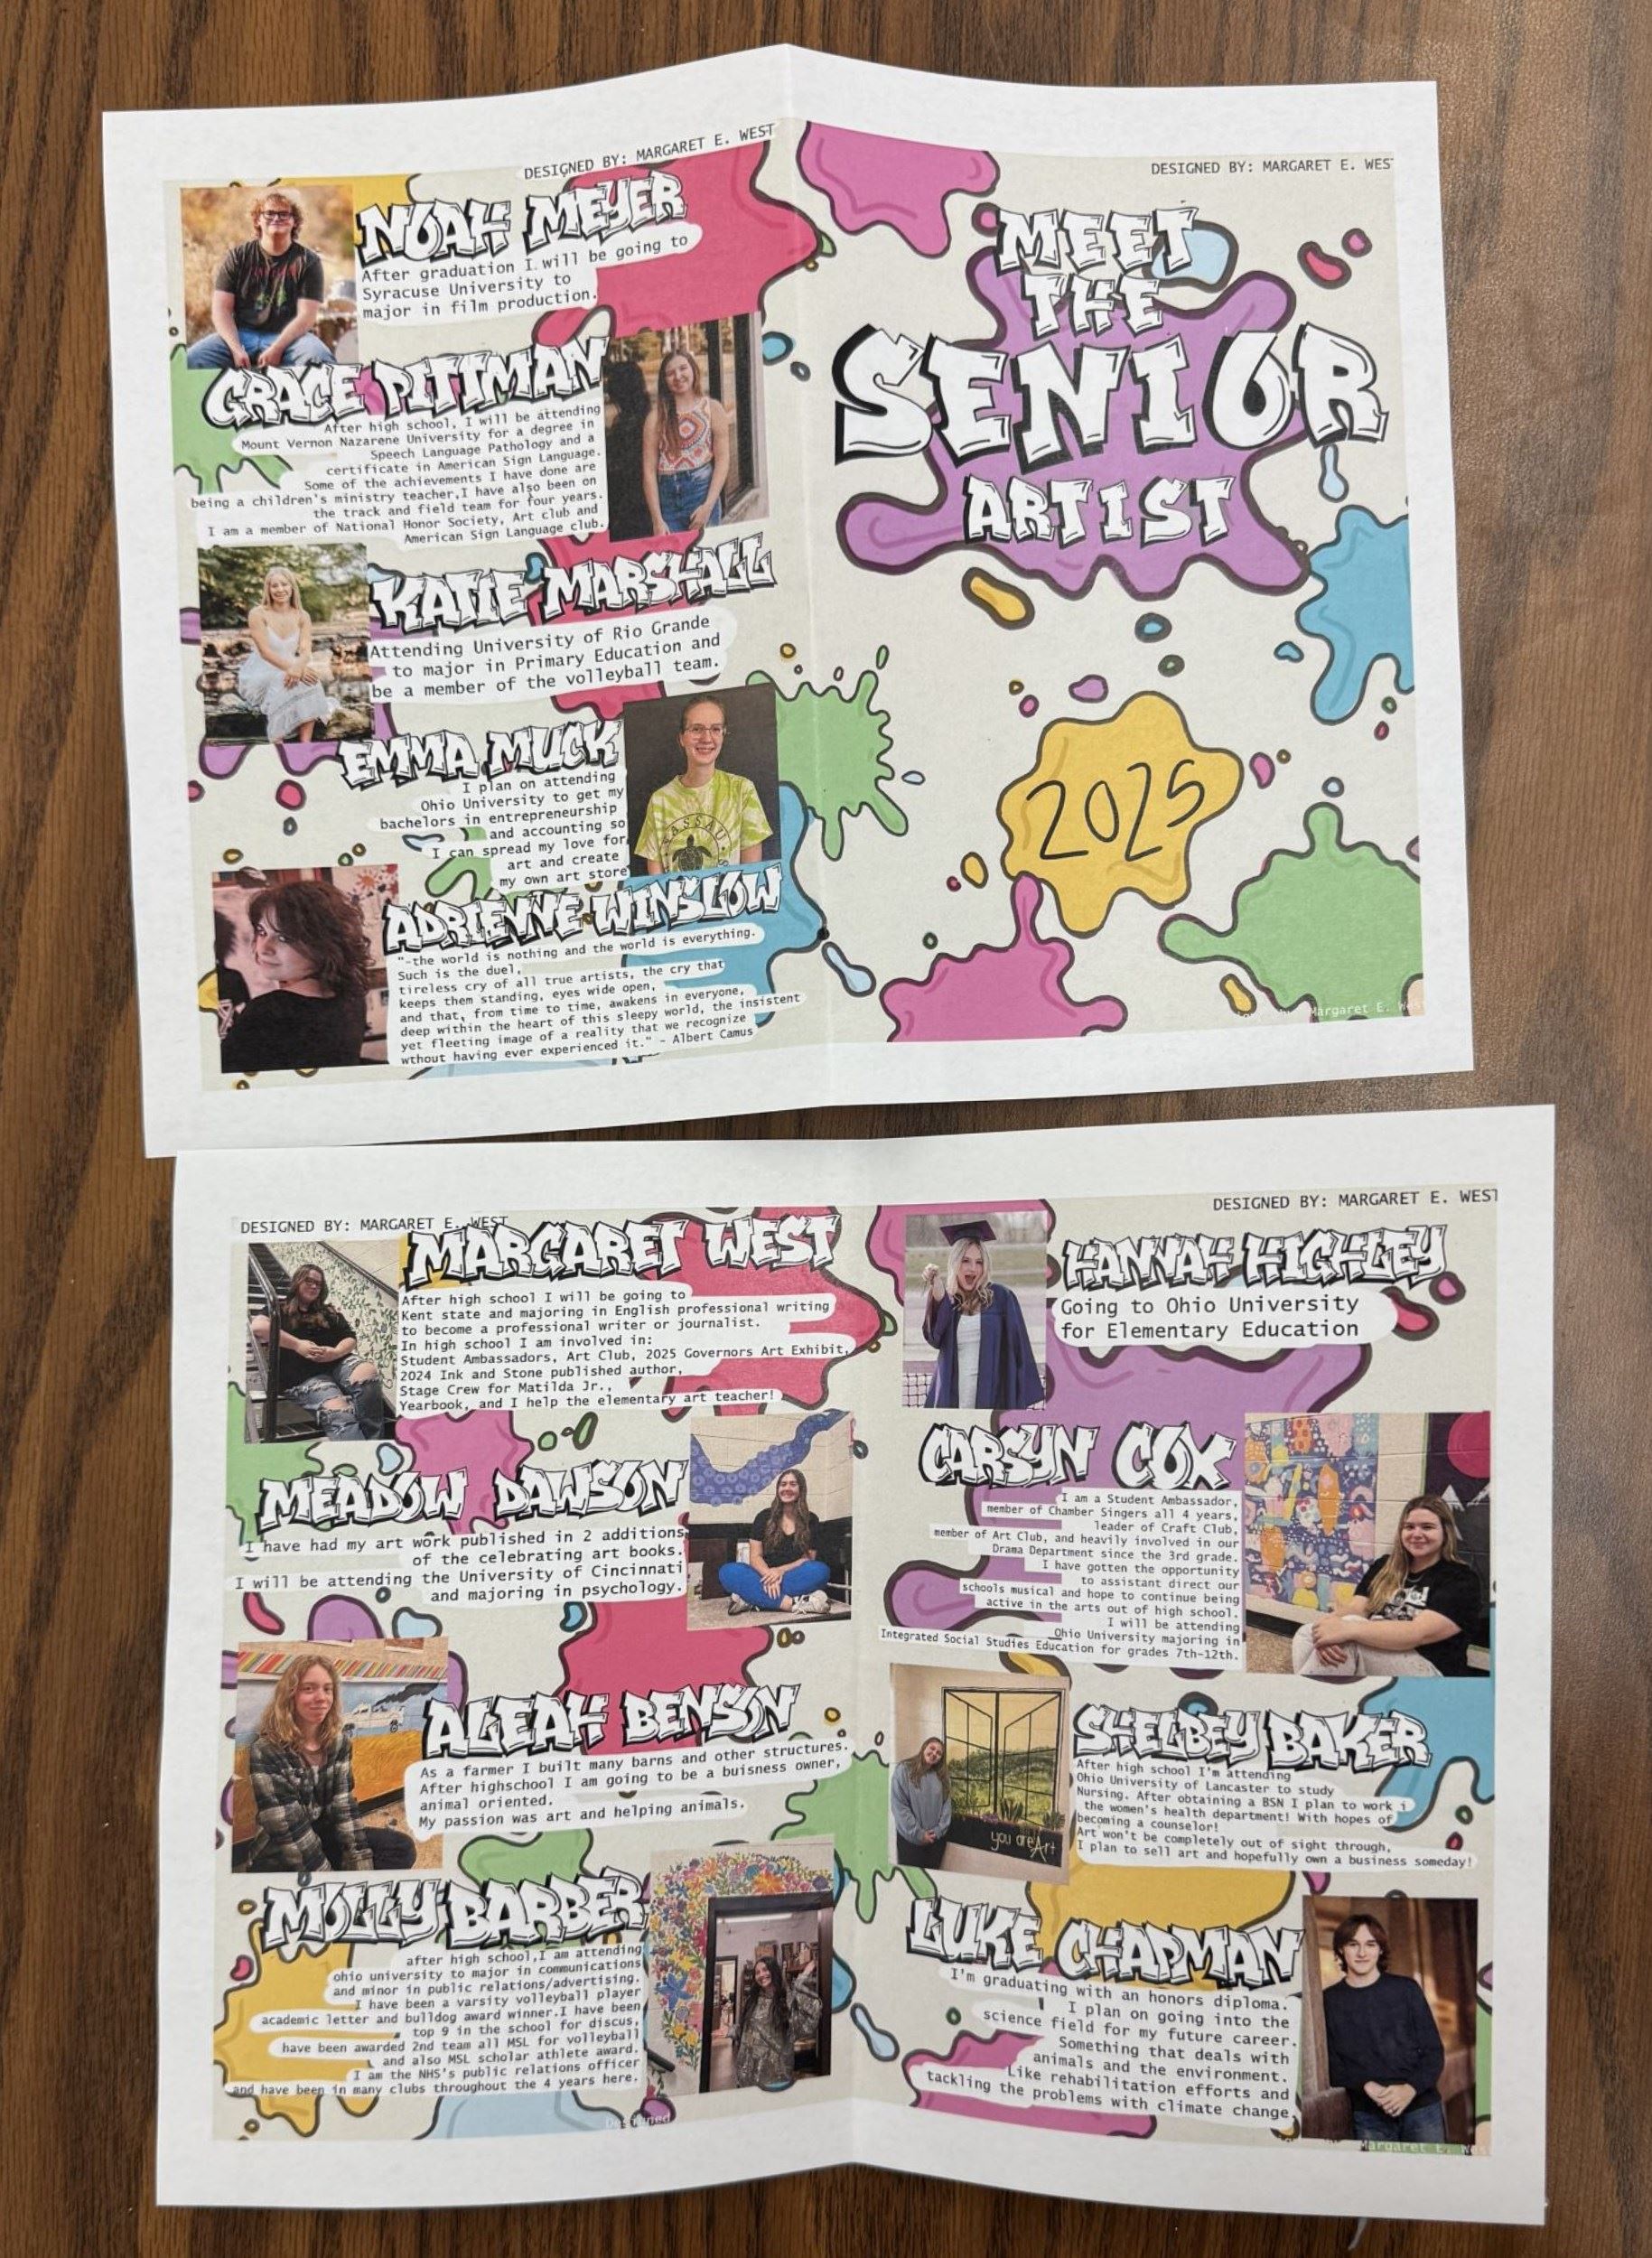 DESIGNED BY: MARGARET E. WEST
NOAH MEYER
After graduation I will be going to
Syracuse University to
major in film production.
GRACE PITTMAN
After high school, I will be attending
Mount Vernon Nazarene University for a degree in
Speech Language Pathology and a
certificate in American Sign Language.
Some of the achievements I have done are
being a children's ministry teacher,I have also been on
the track and field team for four years.
I am a member of National Honor Society, Art club and
American Sign Language club.
KATIE MARSHALL
Attending University of Rio Grande
to major in Primary Education and
be a member of the volleyball team.
EMMA MUCK
I plan on attending
Ohio University to get my
bachelors in entrepreneurship
and accounting so
I can spread my love for
art and create
my own art store
NASSAU
ADRIENNE WINSLOW
"-the world is nothing and the world is everything.
Such is the duel,
tireless cry of all true artists, the cry that
keeps them standing, eyes wide open,
and that, from time to time, awakens in everyone,
deep within the heart of this sleepy world, the insistent
yet fleeting image of a reality that we recognize
wthout having ever experienced it." - Albert Camus
DESIGNED BY: MARGARET E. WES
MEET
THE
SENIOR
ARTIST
2025
Margaret E. Wes
DESIGNED BY: MARGARET E. WEST
MARGARET WEST
After high school I will be going to
Kent state and majoring in English professional writing
to become a professional writer or journalist.
In high school I am involved in:
Student Ambassadors, Art Club, 2025 Governors Art Exhibit,
2024 Ink and Stone published author,
Stage Crew for Matilda Jr.,
Yearbook, and I help the elementary art teacher!
MEADOW DAWSON
I have had my art work published in 2 additions
of the celebrating art books.
I will be attending the University of Cincinnati
and majoring in psychology.
ALEAH BENSON
As a farmer I built many barns and other structures.
After highschool I am going to be a buisness owner,
animal oriented.
My passion was art and helping animals.
MOLLY BARBER
after high school,I am attending
ohio university to major in communications
and minor in public relations/advertising.
I have been a varsity volleyball player
academic letter and bulldog award winner.I have been
top 9 in the school for discus,
have been awarded 2nd team all MSL for volleyball
and also MSL scholar athlete award.
I am the NHS's public relations officer
and have been in many clubs throughout the 4 years here.
Designed
DESIGNED BY: MARGARET E. WEST
HANNAH HIGHLEY
Going to Ohio University
for Elementary Education
CARSYN COX
I am a Student Ambassador,
member of Chamber Singers all 4 years,
leader of Craft Club,
member of Art Club, and heavily involved in our
Drama Department since the 3rd grade.
I have gotten the opportunity
to assistant direct our
schools musical and hope to continue being
active in the arts out of high school.
I will be attending
Ohio University majoring in
Integrated Social Studies Education for grades 7th-12th.
SHELBEY BAKER
After high school I'm attending
Ohio University of Lancaster to study
Nursing. After obtaining a BSN I plan to work i
the women's health department! With hopes of
becoming a counselor!
Art won't be completely out of sight through,
I plan to sell art and hopefully own a business someday!
you are Art
LUKE CHAPMAN
I'm graduating with an honors diploma.
I plan on going into the
science field for my future career.
Something that deals with
animals and the environment.
Like rehabilitation efforts and
tackling the problems with climate change.
Margaret E. Wes